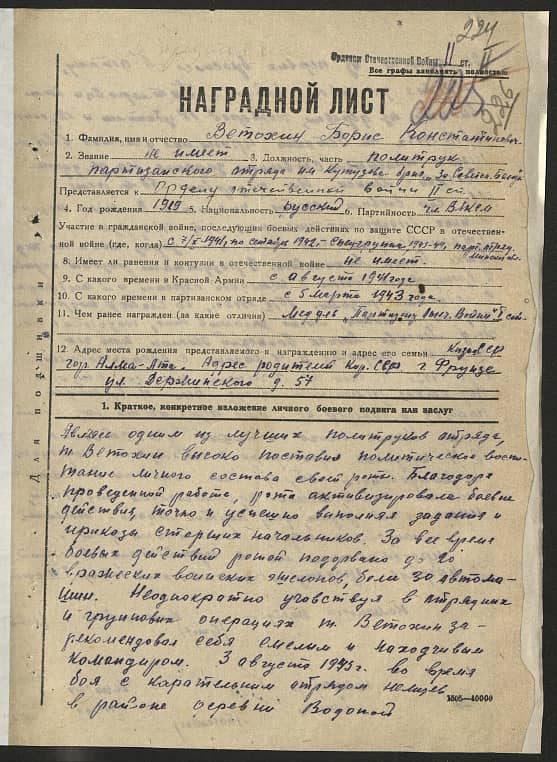 224
Орденом Отечественной Войны II ст.
Все графы заполнять полностью
205
226
НАГРАДНОЙ ЛИСТ
1. Фамилия, имя и отчество Ветохин Борис Константинович
2. Звание не имеет 3. Должность, часть политрук
партизанского отряда им Кутузова бриг. "За Советск.
Представляется к Ордену отечественной войны II ст.
4. Год рождения 1919 5. Национальность русский 6. Партийность чл. ВЛКСМ
Участие в гражданской войне, последующих боевых действиях по защите СССР в отечествен-
ной войне (где, когда) по октябрь 1942
8. Имеет ли ранения и контузии в отечественной войне не имеет.
9. С какого времени в Красной Армии с августа 1941 года
10. С какого времени в партизанском отряде с 5 марта 1943 года.
11. Чем ранее награжден (за какие отличия) Медаль "Партизану Отеч. Войны" I
12 Адрес места рождения представляемого к награждению и адрес его семьи Казах ССР
гор Алма-Ата. Адрес родителей Кир. ССР г. Фрунзе
ул Дзержинского д. 57
Для подшивки
1. Краткое, конкретное изложение личного боевого подвига или заслуг
Являясь одним из лучших политруков отряда,
т. Ветохин высоко поставил политическое воспи-
тание личного состава своей роты. Благодаря
проведенной работе, рота активизировала боевые
действия, точно и успешно выполняя задания и
приказы старших начальников. За все время
боевых действий ротой подорвано до 20
вражеских воинских эшелонов, более 30 автома-
шин. Неоднократно участвуя в отрядных
и групповых операциях т. Ветохин за-
рекомендовал себя смелым и находчивым
командиром. 3 августа 1943 г. во время
боя с карательным отрядом немцев
в районе деревни Водопой
1505—40000